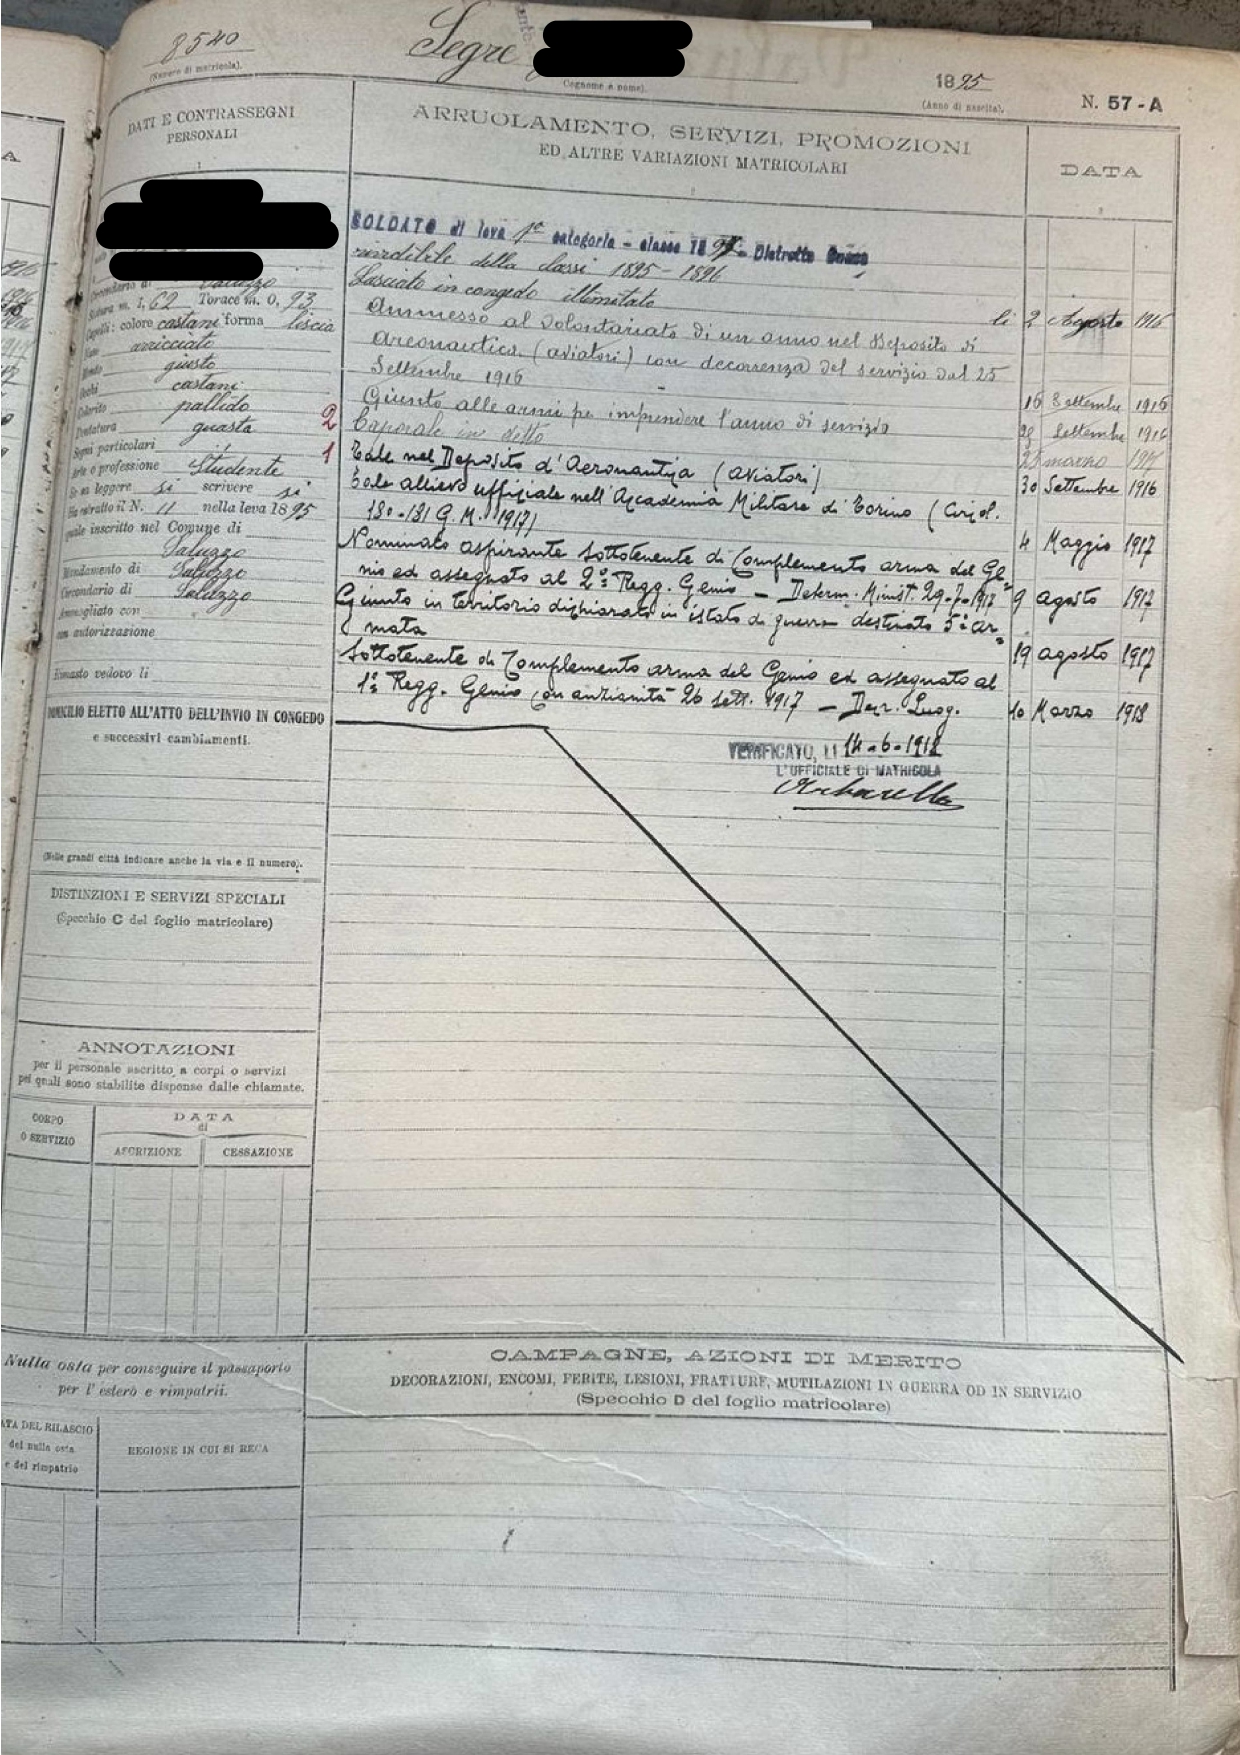 8540
(Numero di matricola).
Segre
Cognome e nome).
1895
(Anno di nascita).
N. 57-A
DATI E CONTRASSEGNI
PERSONALI
1
ARRUOLAMENTO, SERVIZI, PROMOZIONI
ED ALTRE VARIAZIONI MATRICOLARI
2
DATA
3
SOLDATO di leva 1ª categoria - classe 1897 - Distretto Cuneo
rivedibile della classi 1895-1896
Lasciato in congedo illimitato
li 2 Agosto 1916
Ammesso al Volontariato di un anno nel Deposito di
Areonautica (aviatori) con decorrenza del servizio dal 25
Settembre 1916
16 Settembre 1916
Giunto alle armi pe imprendere l'anno di servizio
Settembre 1916
2 Caporale in detto
25 marzo 1917
1 Tale nel Deposito d'Aeronautica (aviatori)
30 Settembre 1916
Tale allievo ufficiale nell'Accademia Militare di Torino (Circol.
130-131 G.M. 1917)
4 Maggio 1917
Nominato aspirante sottotenente di Complemento arma del Ge=
nio ed assegnato al 2º Regg. Genio - Determ. Minist. 29-7-1917
9 agosto 1917
Giunto in territorio dichiarato in istato di guerra destinato 5ª ar=
mata
19 agosto 1917
Sottotenente di Complemento arma del Genio ed assegnato al
1º Regg. Genio con anzianità 26 sett. 1917 - Decr. Luog.
10 Marzo 1918
VERIFICATO, LI 14-6-1918
L'UFFICIALE DI MATRICOLA
Circondario di Saluzzo
Statura m. 1,62 Torace m. 0,93
Capelli: colore castani forma liscia
Naso arricciato
Mento giusto
Occhi castani
Colorito pallido
Dentatura guasta
Segni particolari //
Arte o professione Studente
Se sa leggere si scrivere si
Ha estratto il N. 11 nella leva 1895
quale inscritto nel Comune di
Saluzzo
Mandamento di Saluzzo
Circondario di Saluzzo
Ammogliato con
con autorizzazione
Rimasto vedovo li
DOMICILIO ELETTO ALL'ATTO DELL'INVIO IN CONGEDO
e successivi cambiamenti.
(Nelle grandi città indicare anche la via e il numero).
DISTINZIONI E SERVIZI SPECIALI
(Specchio C del foglio matricolare)
ANNOTAZIONI
per il personale ascritto a corpi o servizi
pei quali sono stabilite dispense dalle chiamate.
CORPO
O SERVIZIO
DATA
di
ASCRIZIONE
CESSAZIONE
Nulla osta per conseguire il passaporto
per l'estero e rimpatrii.
ATA DEL RILASCIO
del nulla osta
e del rimpatrio
REGIONE IN CUI SI RECA
CAMPAGNE, AZIONI DI MERITO
DECORAZIONI, ENCOMI, FERITE, LESIONI, FRATTURE, MUTILAZIONI IN GUERRA OD IN SERVIZIO
(Specchio D del foglio matricolare)